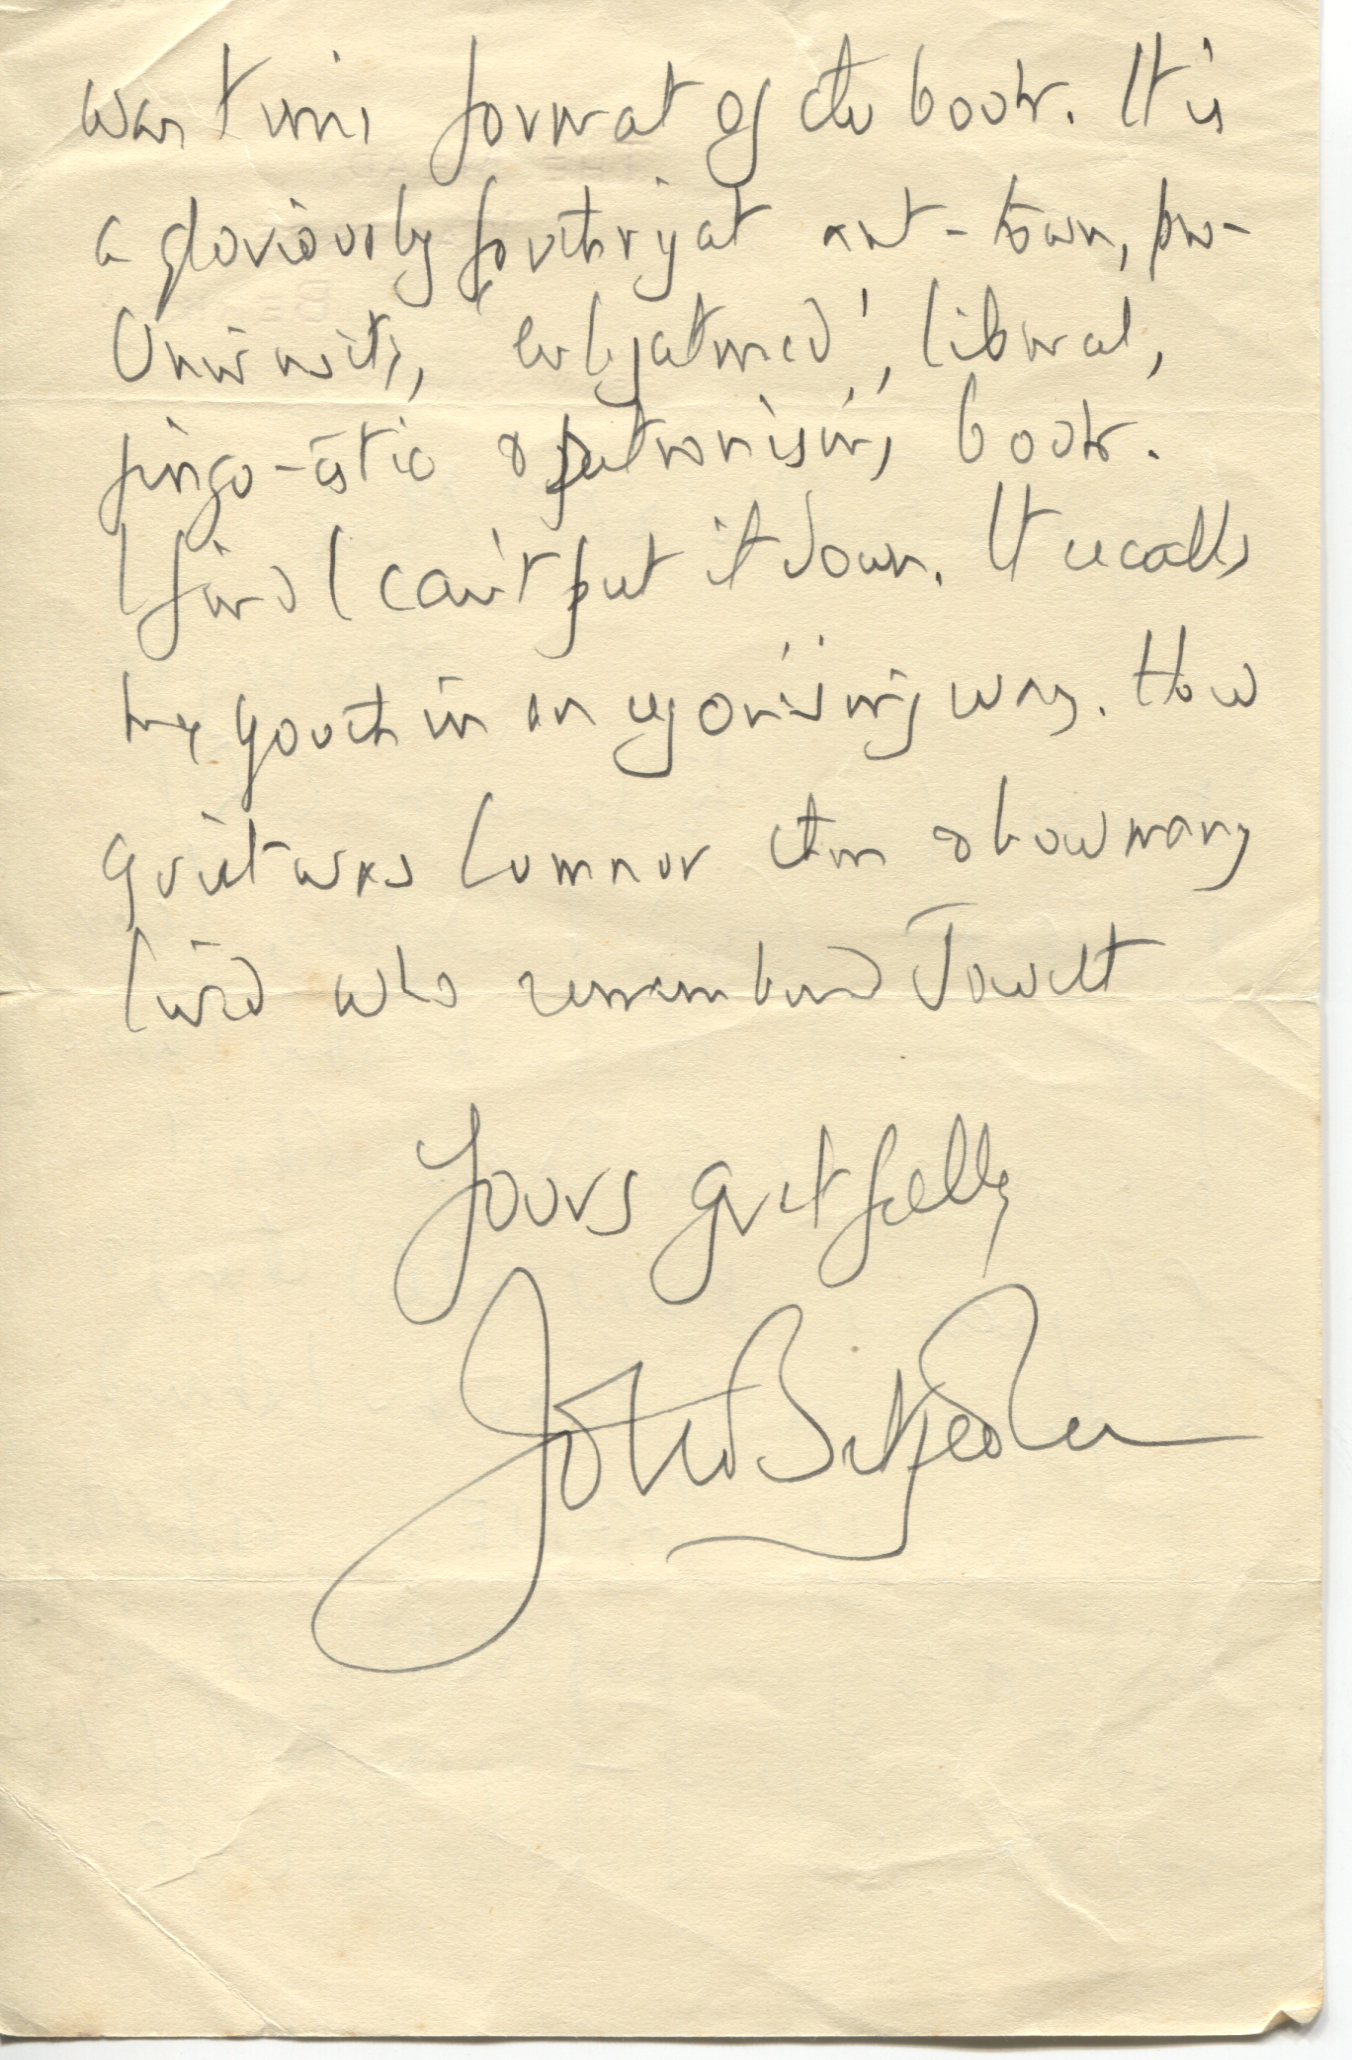 war time format of the book. It is
a gloriously forthright ant-town, pro-
University, 'enlightened', liberal,
jingo-istic & patronising book.
I find I can't put it down. It recalls
my youth in an agonising way. How
quiet was Cumnor then & how many
lived who remembered Jowett
Yours gratefully
John Betjeman